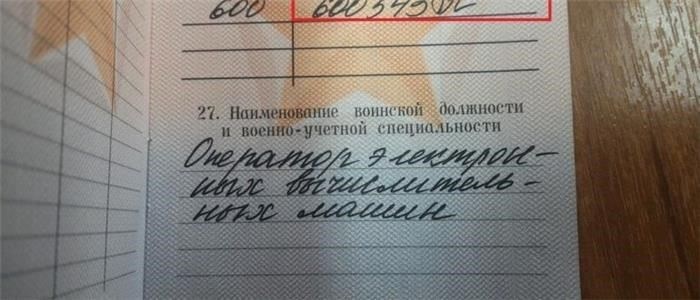 600 600543
27. Наименование воинской должности
и военно-учетной специальности
Оператор электрон-
ных вычислитель-
ных машин